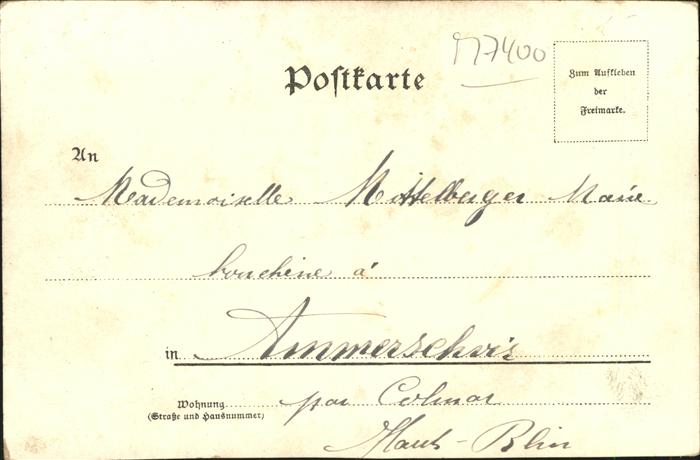 M7400
Postkarte
Zum Aufkleben
der
Freimarke.
An
Mademoiselle Mittelburger Marie
bouchère à
in Ammerschvir
Wohnung par Colmar
(Straße und Hausnummer)
Haut-Rhin